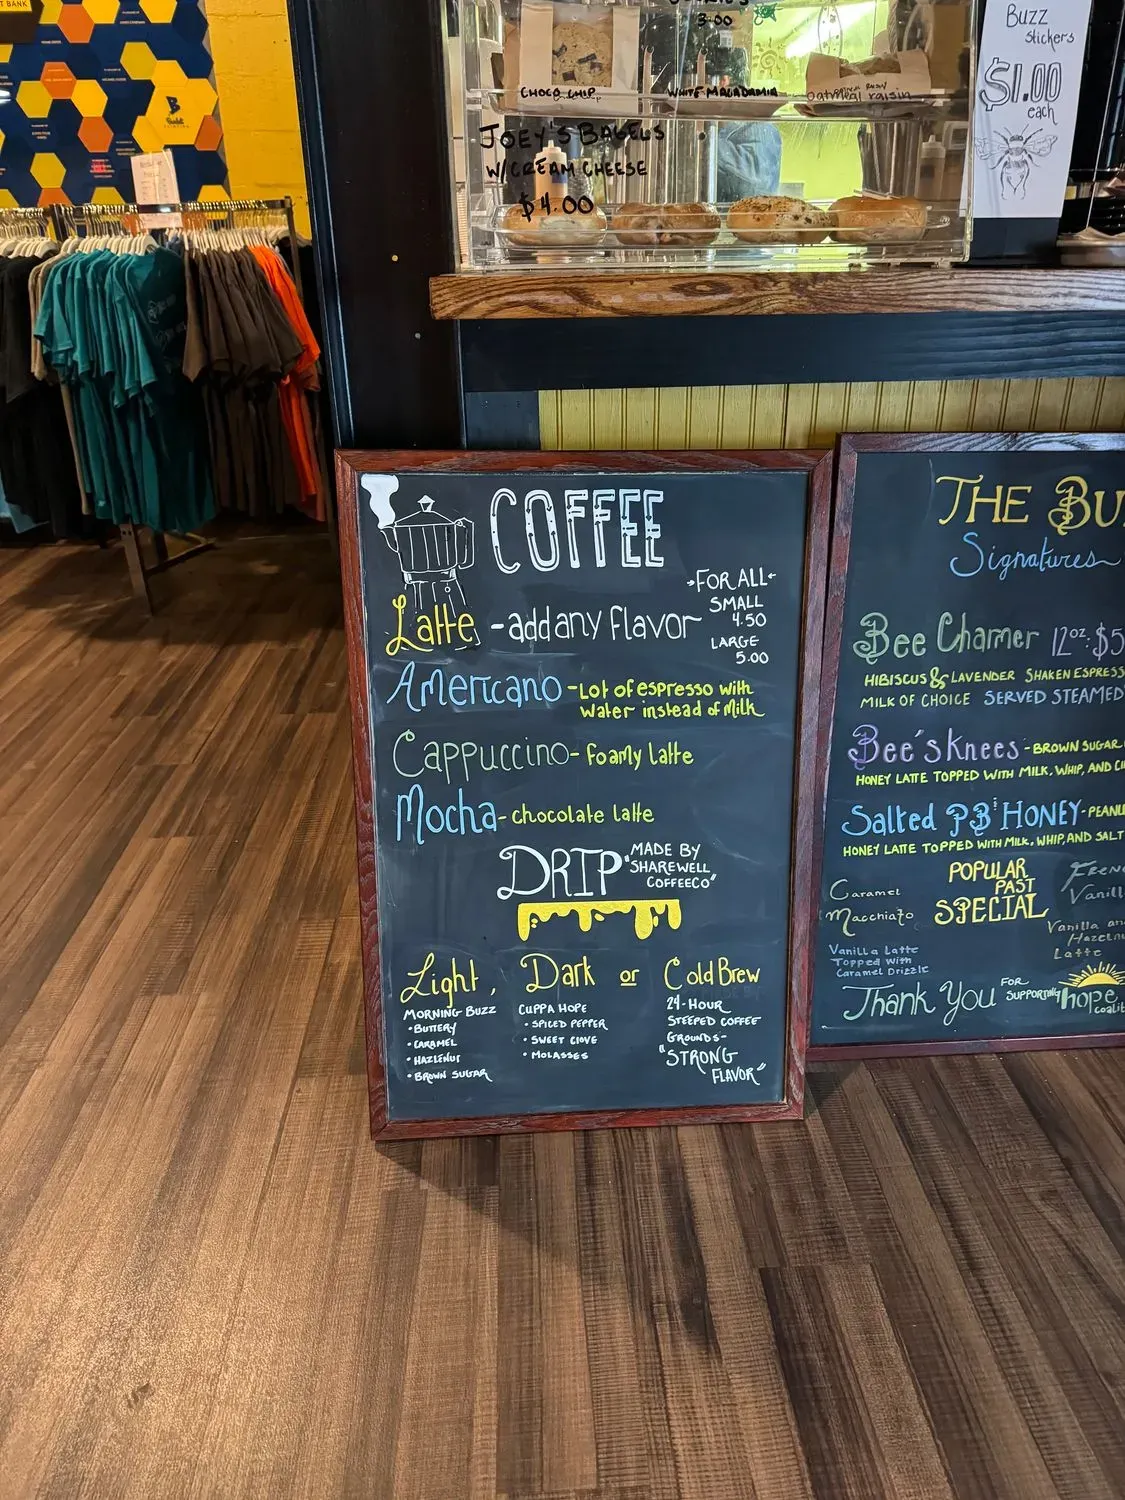 T BANK
Buzz
stickers
$1.00
each
3.00
CHOCO CHIP
WHITE MACADAMIA
oatmeal raisin
JOEY'S BAGELS
W/CREAM CHEESE
$4.00
COFFEE
FOR ALL
SMALL
4.50
LARGE
5.00
Latte - add any flavor
Americano - Lot of espresso with
water instead of Milk
Cappuccino - foamy latte
Mocha - chocolate latte
DRIP "MADE BY
SHAREWELL
COFFEECO"
Light, Dark or Cold Brew
MORNING BUZZ
• BUTTERY
• CARAMEL
• HAZLENUT
• BROWN SUGAR
CUPPA HOPE
• SPICED PEPPER
• SWEET CLOVE
• MOLASSES
24-HOUR
STEEPED COFFEE
GROUNDS-
"STRONG
FLAVOR"
THE BU
Signatures
Bee Charmer 12oz: $5
HIBISCUS & LAVENDER SHAKEN ESPRESS
MILK OF CHOICE SERVED STEAMED
Bee's Knees - BROWN SUGAR
HONEY LATTE TOPPED WITH MILK, WHIP, AND CI
Salted PB & HONEY - PEANU
HONEY LATTE TOPPED WITH MILK, WHIP, AND SALT
POPULAR
PAST
SPECIAL
Caramel
Macchiato
Vanilla Latte
Topped with
Caramel Drizzle
French
Vanill
Vanilla an
Hazeln
Latte
Thank You FOR
SUPPORTING hope
coalit